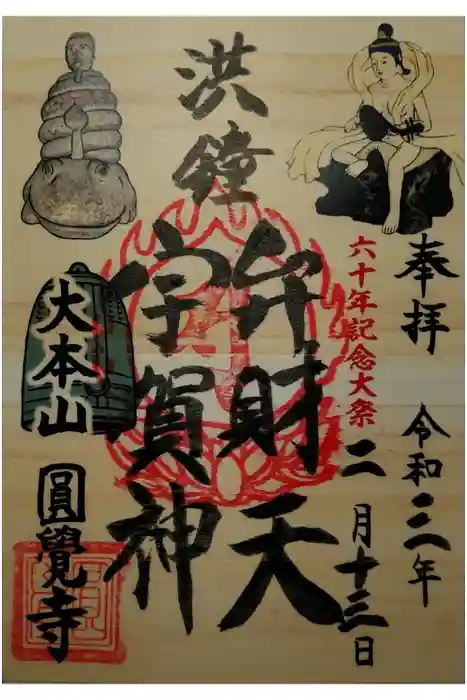 奉拝
令和三年
二月十三日
六十年記念大祭
洪鐘
弁財天
宇賀神
大本山
圓覺寺